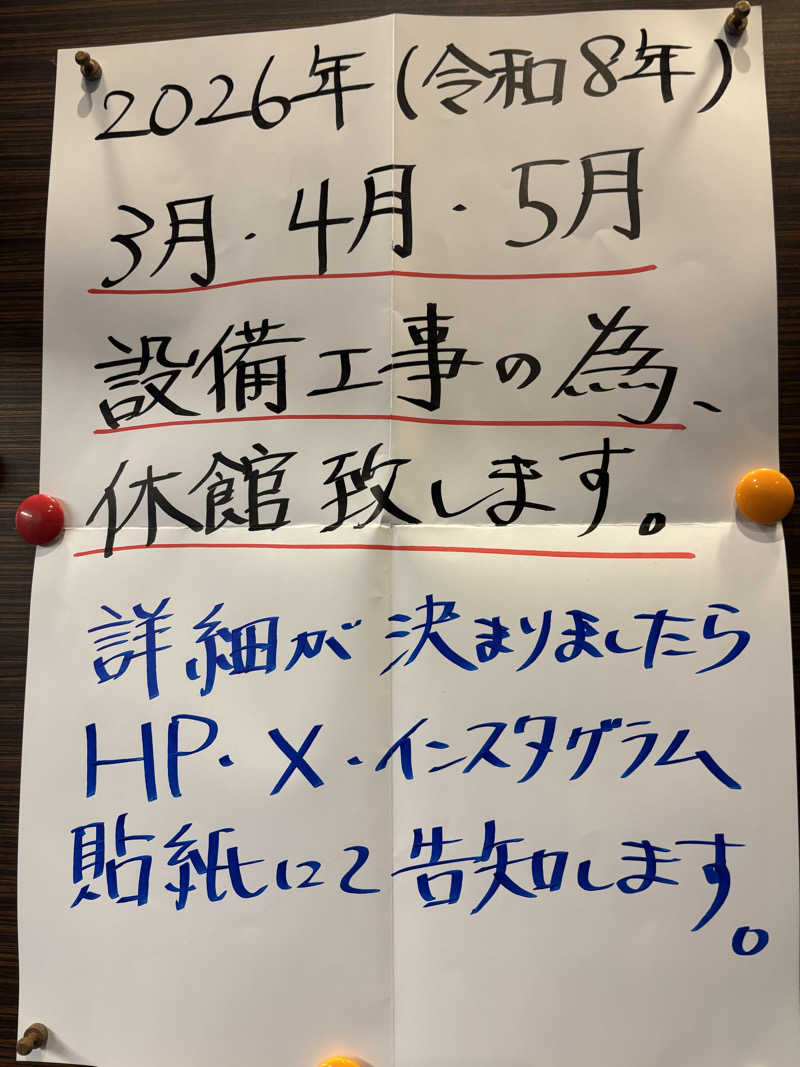 2026年(令和8年)
3月・4月・5月
設備工事の為、
休館致します。
詳細が決まりましたら
HP・X・インスタグラム
貼紙にて告知します。